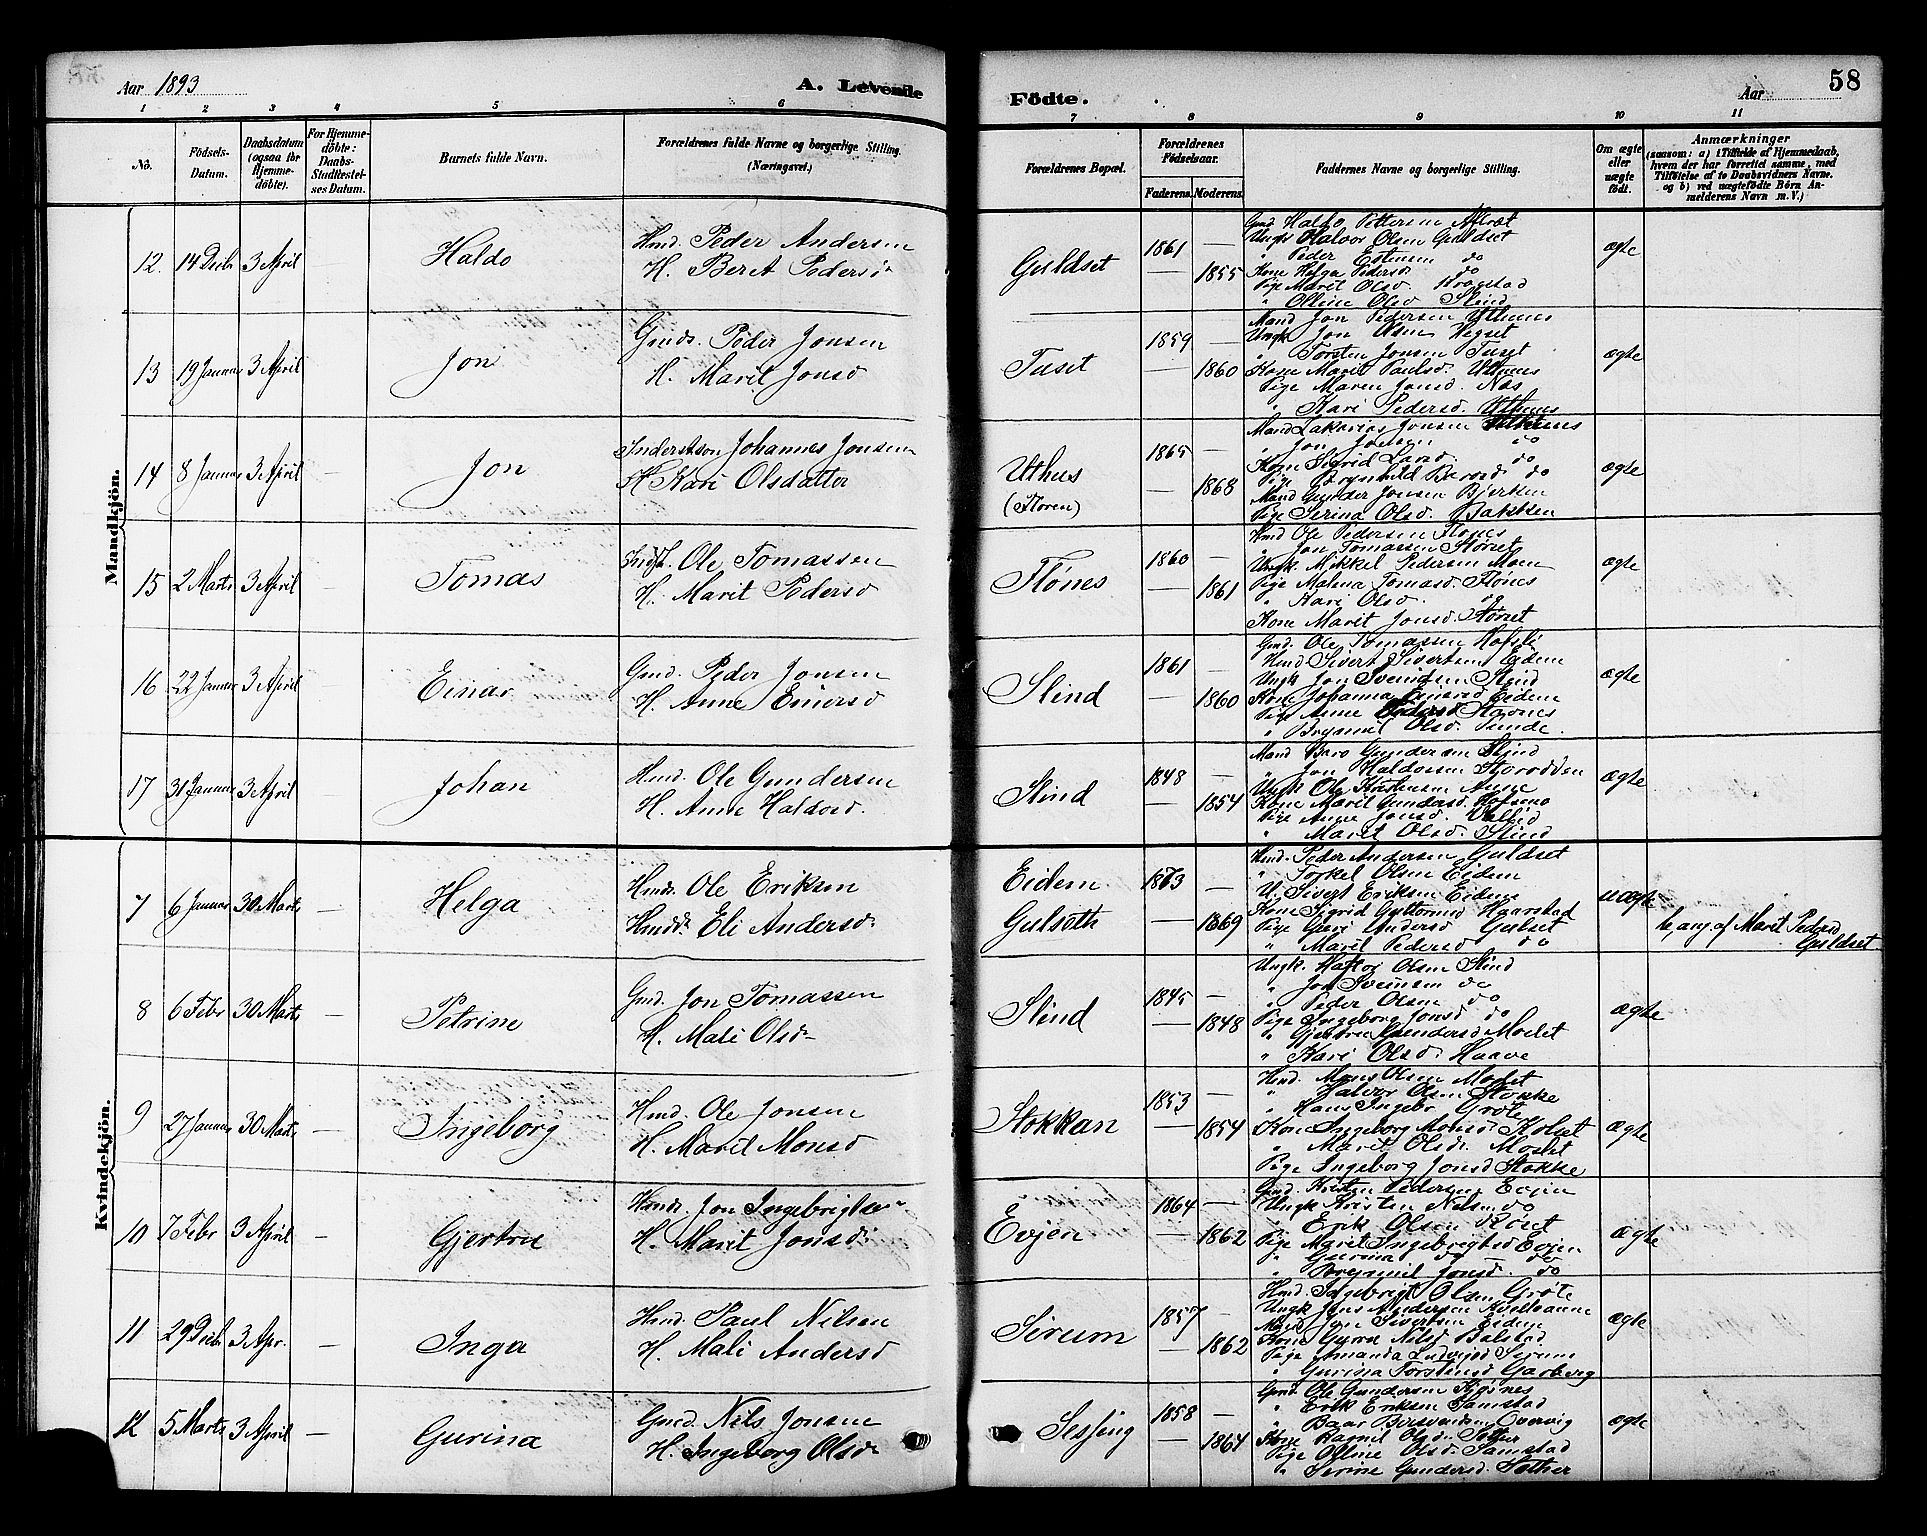 Aar 1893
A. Levende
Födte.
Aar
58
1 2 3 4 5 6 7 8 9 10 11
No.
Födsels-Datum.
Daabsdatum (ogsaa for Hjemmedöbte).
For Hjemmedöbte: Daabs-Stadfestelses Datum.
Barnets fulde Navn.
Forældrenes fulde Navne og borgerlige Stilling. (Næringsvei.)
Forældrenes Bopæl.
Forældrenes Födselsaar.
Faderens.
Moderens.
Faddernes Navne og borgerlige Stilling.
Om ægte eller uægte födt.
Anmærkninger
(saasom: a) i Tilfælde af Hjemmedaab, hvem der har forrettet samme, med Tilföielse af to Daabsvidners Navne. og b) ved uægtefödte Börn Anmelderens Navn m. V.)
Mandkjön.
12. 14 Decbr 3 April — Haldo
Hmd. Peder Andersen
H. Beret Pedersd
Guldset
1861 —
— 1855
Gmd Haldo Pettersen
Ungk Halvor Olsen Guldset
" Peder Estensen do
Kone Helga Pedersd. do
Pige Marit Olsd.
" Olline Olsd Slind
ægte
13 19 Januar 3 April — Jon
Gmds. Peder Jonsen
H. Marit Jonsd
Tuset
1859 —
— 1860
Mand Jon Pedersen Uthuus
Ungk Jon Olsen Hegset
" Torsten Jonsen Tuset
Kone Marit Paulsd. Uthuus
Pige Maren Jonsd. Næs
" Kari Pedersd. Uthuus
ægte
14 8 Januar 3 April — Jon
Inderstson Johannes Jonsen
H Kari Olsdatter
Uthus
(Floren)
1865 —
— 1868
Mand Zakarias Jonsen
" Jon Jonsen do
Kone Sigrid Larsd. do
Pige Brynhild Baroed do
Mand Gunder Jonsen Bjerken
Pige Serina Olsd.
ægte
15 2 Marts 3 April — Tomas
Ole Tomassen
H. Marit Pedersd
Flönes
1860 —
— 1861
Hmd Ole Pedersen Flönes
" Jon Tomassen Störset
Ungk. Mikkel Pedersen Moen
Pige Malena Tomasd. Flönes
" Kari Olsd. og
Kone Marit Jonsd. Störset
ægte
16 22 Januar 3 April — Einar
Gmd. Peder Jonsen
H. Anne Einersd
Slind
1861 —
— 1860
Gmd. Ole Tomassen Hofsli
Hmd. Sivert Sivertsen Eidem
Ungk Jon Sveindsen Slind
Kone Johanna Einersd Eidem
Pige Anne Pedersd
" Brynnil Olsd. Sunde.
ægte
17 31 Januar 3 April — Johan
Hmd. Ole Gundersen
H. Anne Haldosd.
Slind
1848 —
— 1854
Mand Baro Gundersen Slind
" Jon Haldorsen Storodden
Ungk Ole Kristensen Aune
Kone Marit Gundersd. Hofsmo
Pige Anne Jonsd.
" Marit Olsd. Slind
ægte
Kvindekjön.
7 6 Januar 30 Marts — Helga
Hmds. Ole Eriksen
Hmdd. Eli Andersd.
Eidem
Gulseth
1873 —
— 1869
Hmd. Peder Andersen Guldset
" Torkel Olsen Eidem
U. Sivert Eriksen Eidem
Kone Sigrid Guttormsd Haarstad
Pige Guri Andersd Gulset
" Marit Pedersd do
uægte
b, ang. af Marit Pedersd
Guldset
8 6 Febr 30 Marts — Petrine
Gmd. Jon Tomassen
H. Mali Olsd
Slind
1845 —
— 1848
Ungk. Haftor Olsen Slind
" Jon Sveinsen do
" Peder Olsen do
Pige Ingeborg Jonsd do
" Gjertru Gundersd Moslet
" Kari Olsd. Haave
ægte
9 27 Januar 30 Marts Ingeborg
Hmd. Ole Jonsen
H. Marit Monsd
Stokkan
1853 —
— 1854
Hmd. Mons Olsen Moslet
" Halvor Olsen Stokke
" Hans Ingebr Gröte
Kone Ingeborg Monsd Kolset
" Marit Olsd. Moslet
Pige Ingeborg Jonsd Stokke
ægte
10 7 Febr 3 April — Gjertru
Hmds. Jon Ingebrigtsen
H. Marit Jonsd.
Evjen
1864 —
— 1862
Gmd. Kristen Pedersen Evjen
Ungk Kristen Nilsen do
" Erik Olsen Röset
Pige Marit Ingebrigtsd Evjen
" Gurina do do
" Brynnil Jonsd. do
ægte
11 29 Decbr 3 Apr. — Inga
Hmd. Paul Nilsen
H. Mali Andersd
Sirum
1857 —
— 1862
Hmd. Ingebrigt Olsen Gröte
Ungk Jens Andersen
Mand Jon Sivertsen Eidem
Kone Gurru Nilsd Balstad
Pige Amanda Ludvigsd Serum
" Gurina Torstensd Garberg
ægte
12 5 Marts 3 April — Gurina
Gmd. Nils Jonsen
H. Ingeborg Olsd.
Sessing
1858 —
— 1864
Gmd. Ole Gundersen Kjösnes
" Erik Eriksen Samstad
" Baar Bersvendsen Overvig
Kone Ragnil Olsd. Sether
Pige Olline Olsd. Samstad
" Serine Gundersd. Sether
ægte